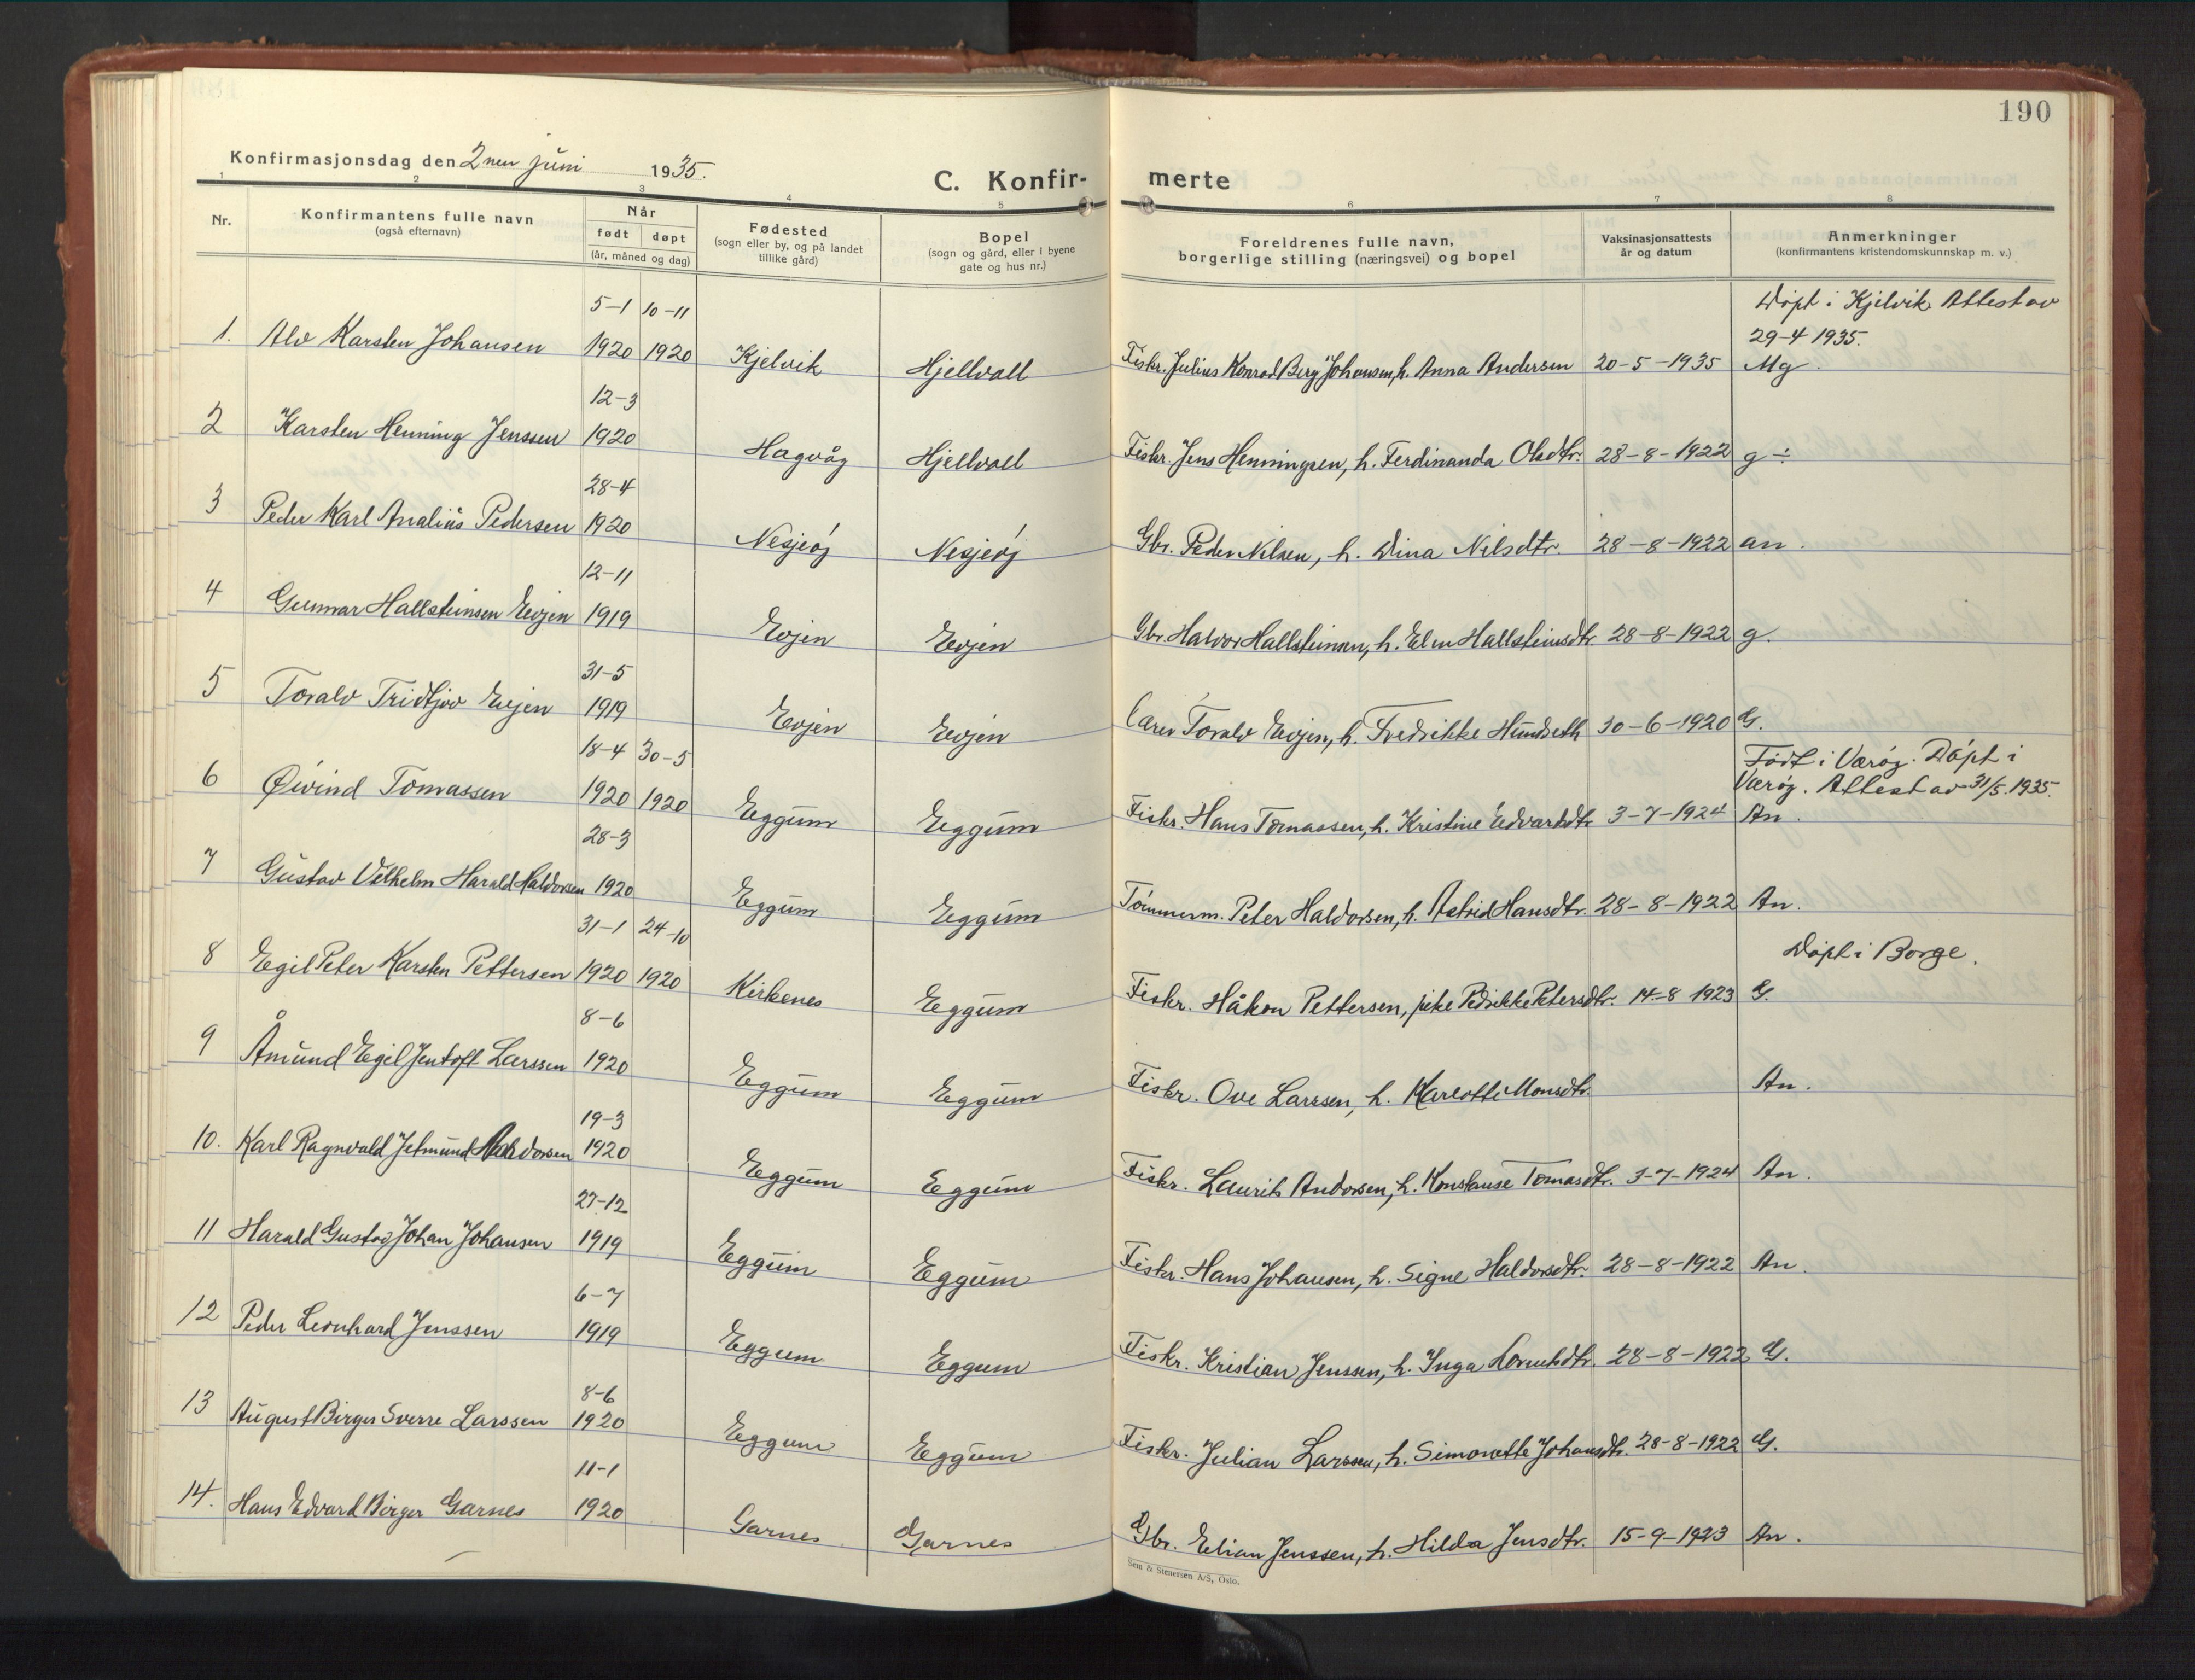 190
Konfirmasjonsdag den 2nen juni 1935.
C. Konfir- merte
1 2 3 4 5 6 7 8
Nr.
Konfirmantens fulle navn
(også efternavn)
Når
født døpt
(år, måned og dag)
Fødested
(sogn eller by, og på landet
tillike gård)
Bopel
(sogn og gård, eller i byene
gate og hus nr.)
Foreldrenes fulle navn,
borgerlige stilling (næringsvei) og bopel
Vaksinasjonsattests
år og datum
Anmerkninger
(konfirmantens kristendomskunnskap m. v.)
5-1 10-11 Døpt i Kjelvik Attest av
29-4 1935.
1. Alv Karsten Johansen 1920 1920 Kjelvik Hjellvoll Fiskr. Julius Konrad Berg Johansen, h. Anna Andersen 20-5-1935 Mg.
12-3
2 Karsten Henning Jenssen 1920 Hagvåg Hjellvoll Fiskr. Jens Henningsen, h. Ferdinanda Olsdtr. 28-8-1922 g ÷
28-4
3 Peder Karl Analius Pedersen 1920 Nesjeøj Nesjeøj Gbr. Peder Nilsen, h. Dina Nilsdtr. 28-8-1922 an.
12-11
4 Gunnar Hallsteinsen Evjen 1919 Evjen Evjen Gbr. Halvor Hallsteinsen, h. Elen Hallsteinsdtr. 28-8-1922 g.
31-5
5 Toralv Fridtjov Evjen 1919 Evjen Evjen Toralv Evjen, h. Fredrikke Hundseth 30-6-1920 G.
18-4 30-5 Født i Værøy. Døpt i
Værøy. Attest av 31/5.1935.
6 Øivind Tomassen 1920 1920 Eggum Eggum Fiskr. Hans Tomassen, h. Kristine Edvardsdtr 3-7-1924 An.
28-3
7 Gustav Vilhelm Harald Haldorsen 1920 Eggum Eggum Tømmerm. Peter Haldorsen, h. Astrid Hansdtr. 28-8-1922 An.
31-1 24-10 Døpt i Borge.
8 Egil Peter Karsten Pettersen 1920 1920 Kirkenes Eggum Fiskr. Håkon Pettersen, pike Petersdtr. 14-8 1923 G.
8-6
9 Åmund Egil Jentoft Larssen 1920 Eggum Eggum Fiskr. Ove Larssen, h. Karlotte Monsdtr. An.
19-3
10. Karl Ragnvald Jetmund Haldorsen 1920 Eggum Eggum Fiskr. Laurits Andorsen, h. Konstanse Tomasdtr. 3-7-1924 An.
27-12
11 Harald Gustav Johan Johansen 1919 Eggum Eggum Fiskr. Hans Johansen, h. Signe Haldorsdtr. 28-8-1922 An.
6-7
12 Peder Leonhard Jenssen 1919 Eggum Eggum Fiskr. Kristian Jenssen, h. Inga 28-8-1922 G.
8-6
13 August Birger Sverre Larssen 1920 Eggum Eggum Fiskr. Julian Larssen, h. Simonette Johansdtr. 28-8-1922 G.
11-1
14. Hans Edvard Birger Garnes 1920 Garnes Garnes Gbr. Elian Jenssen, h. Hilda Jensdtr. 15-9-1923 An.
Sem & Stenersen A/S, Oslo.